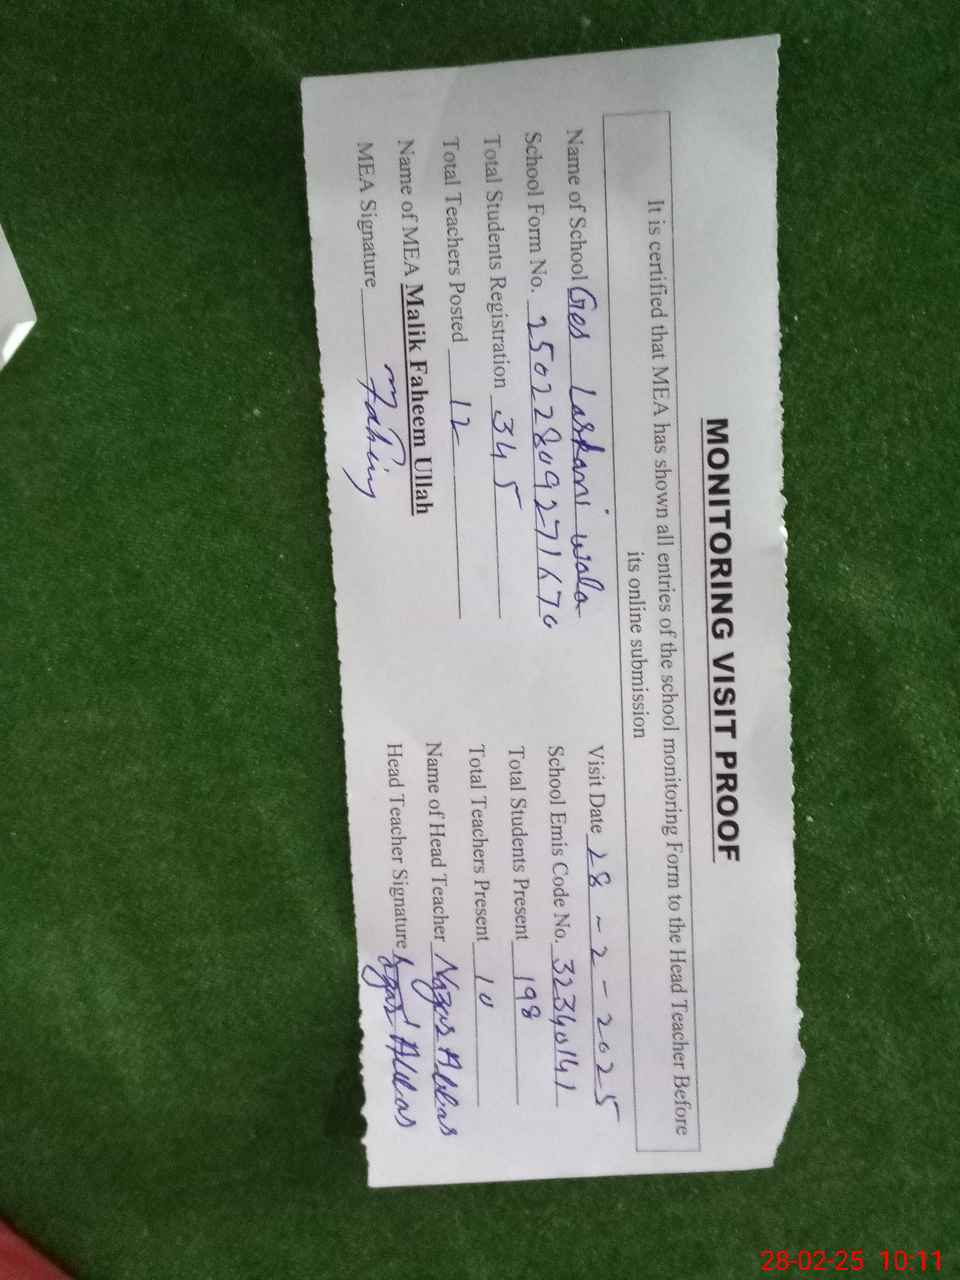 MONITORING VISIT PROOF
It is certified that MEA has shown all entries of the school monitoring Form to the Head Teacher Before
its online submission
Name of School Ges Laskani wala
Visit Date 28-2-2025
School Form No. 250228092716 70
School Emis Code No. 32340141
Total Students Registration 345
Total Students Present 198
Total Teachers Posted 12
Total Teachers Present 10
Name of MEA Malik Faheem Ullah
Name of Head Teacher Abbas
MEA Signature
Head Teacher Signature Abbas
28-02-25 10:11